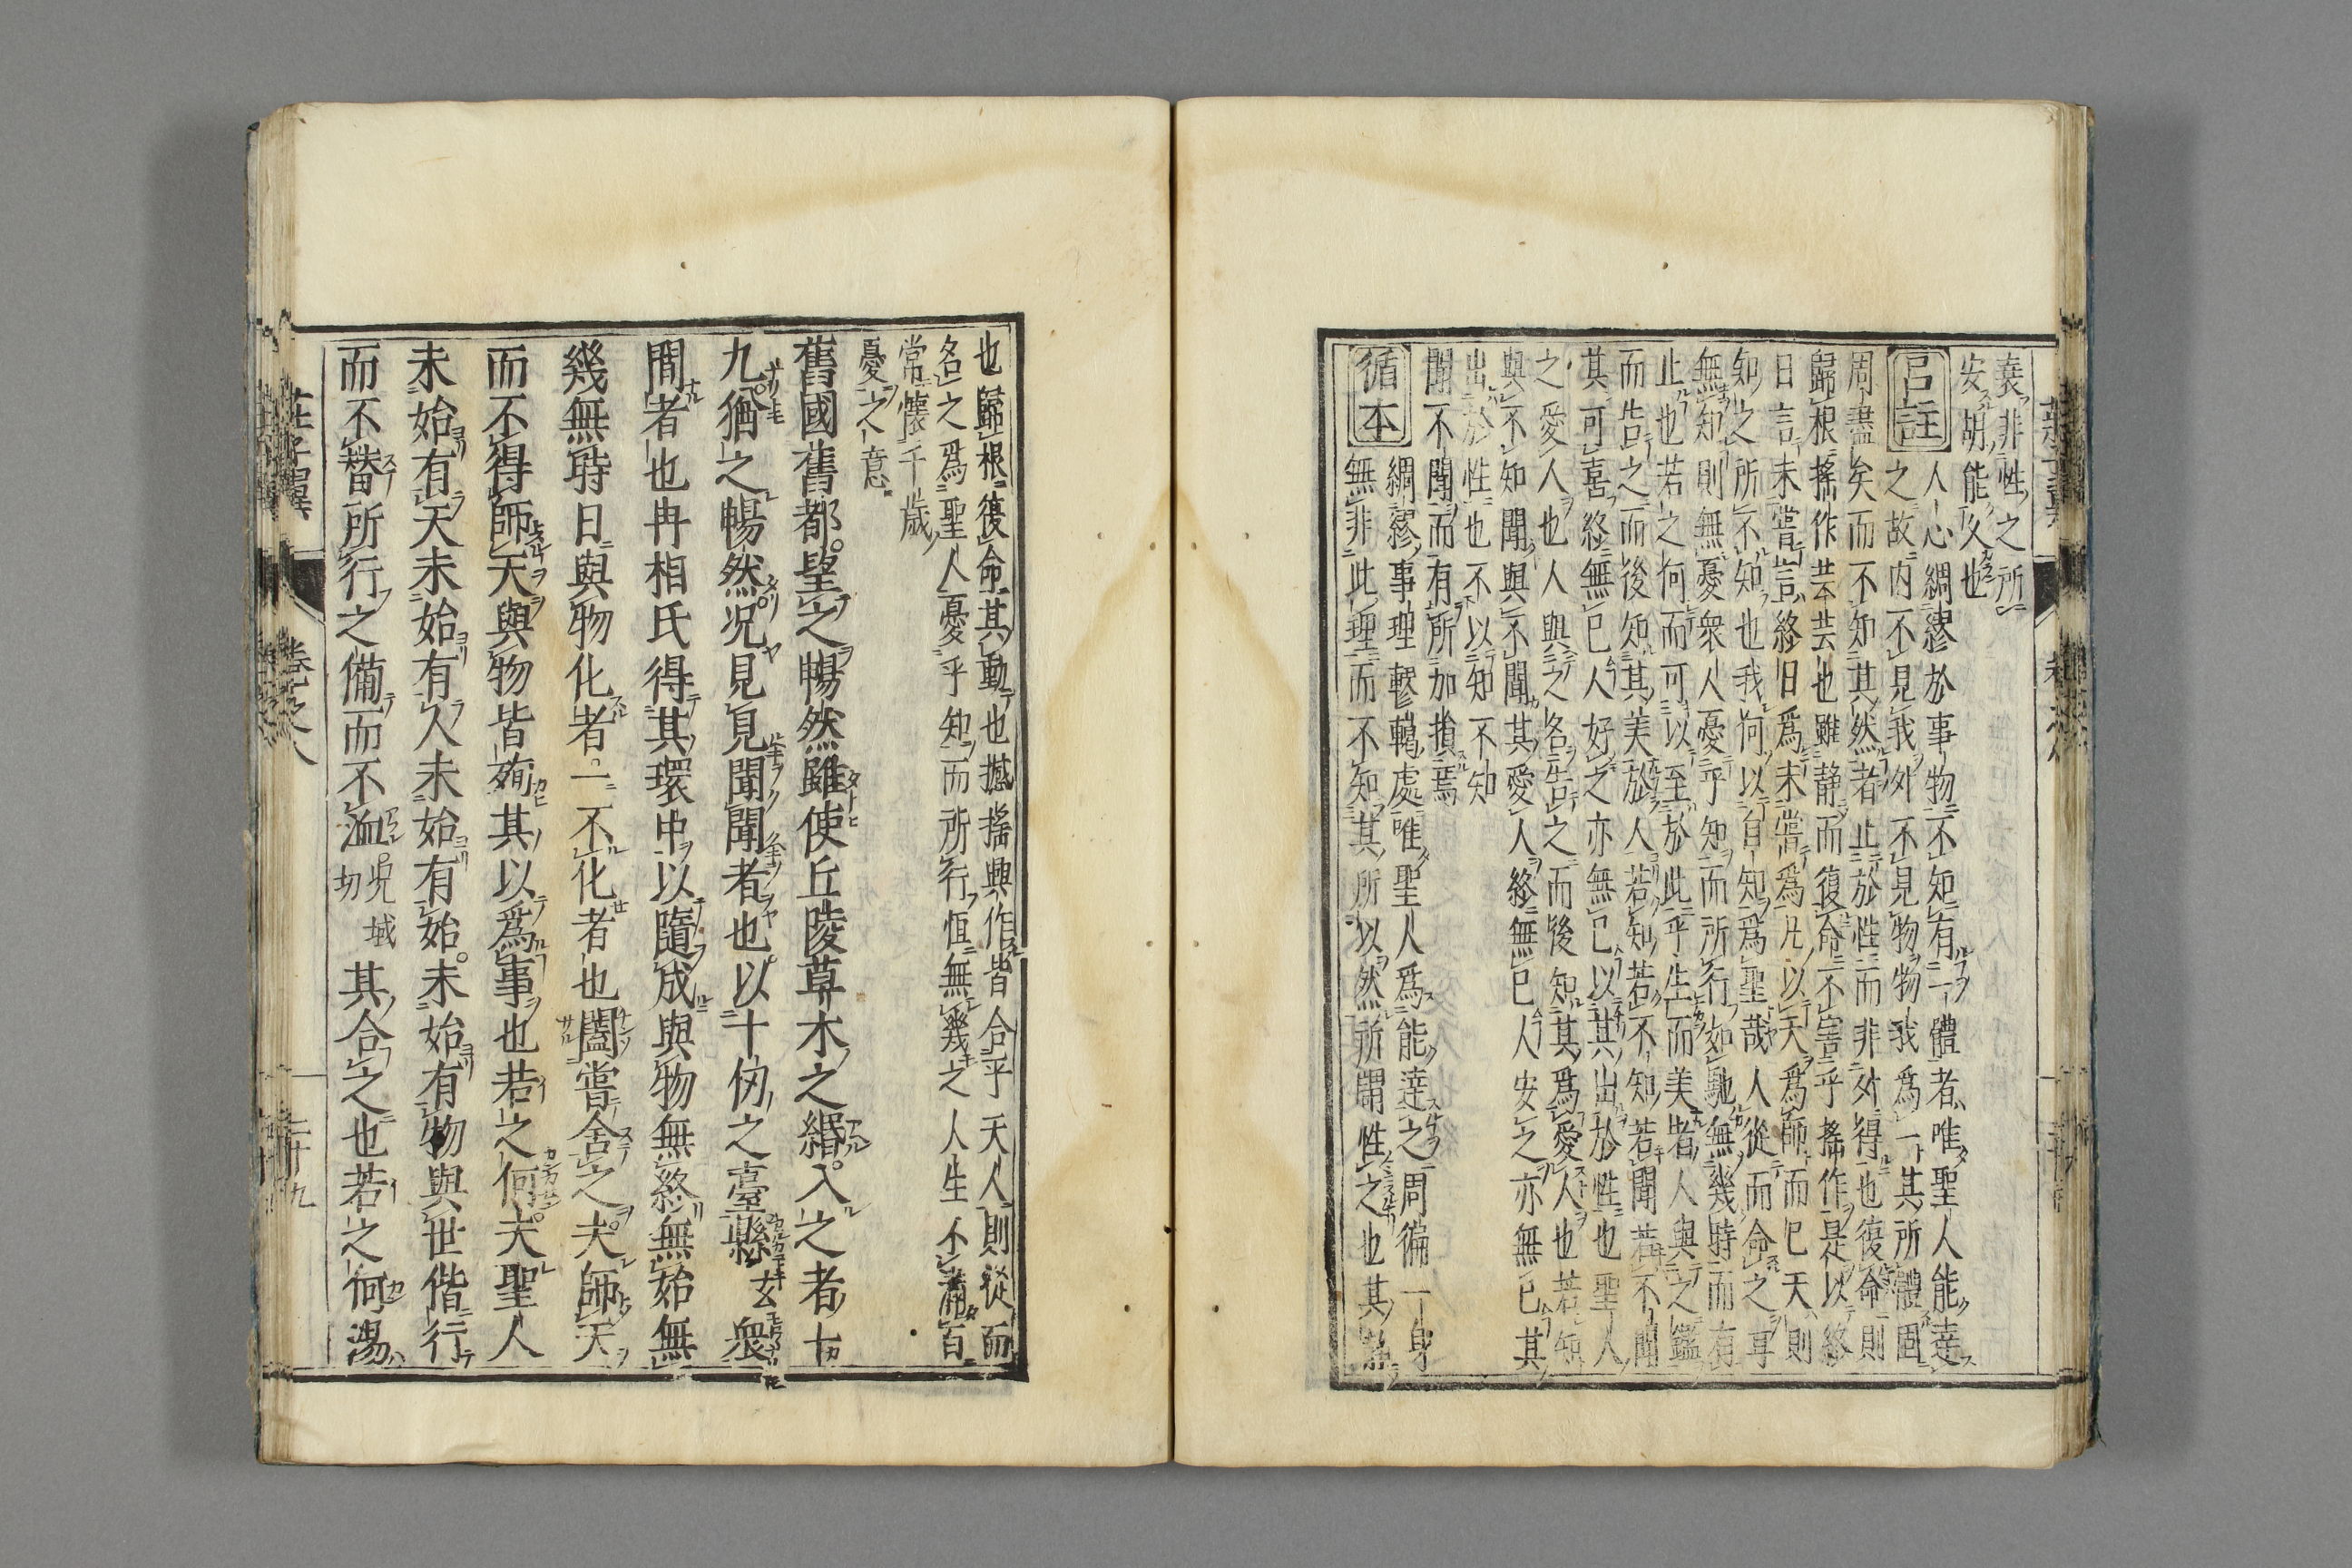 蓑非性之所
安胡能久也
呂註
人心綢繆於事物不知有一體者唯聖人能達
之故内不見我外不見物物我爲一其所體固
周盡矣而不知其然者止於性而非外得也復命則
歸根揺作芸芸也雖静而復命不害乎揺作是以終
日言未嘗言終日爲未嘗爲凡以天爲師而已天則
知之所不知也我何以自知爲聖哉人從而命之耳
無知則無憂衆人憂乎知而所行如馳無幾時而有
止也若之何而可以至於此乎生而美者人與之鑑
而告之而後知其美於人若知若不知若聞若不聞
其可喜終無已人好之亦無已以其出於性也聖人
之愛人也人與之名告之而後知其爲愛人也若知
與不知聞與不聞其愛人終無已人安之亦無已其
出於性也不以知不知
聞不聞而有所加損焉
循本
綢繆事理轇轕處唯聖人爲能達之周徧一身
無非此理而不知其所以然所謂性之也其
也歸根復命其動也撼揺興作皆合乎天人則從而
名之爲聖人憂乎知而所行恒無幾之人生不滿百
常懷千歳
憂之意
舊國舊都望之暢然雖使丘陵草木之緡入之者十
九猶之暢然况見見聞聞者也以十仞之臺縣玄衆
間者也冉相氏得其環中以隨成與物無終無始無
幾無時日與物化者一不化者也闔嘗舍之夫師天
而不得師天與物皆殉其以爲事也若之何夫聖人
未始有天未始有人未始有始未始有物與世偕行
而不替所行之備而不洫况域切其合之也若之何湯
卷之八
二十九